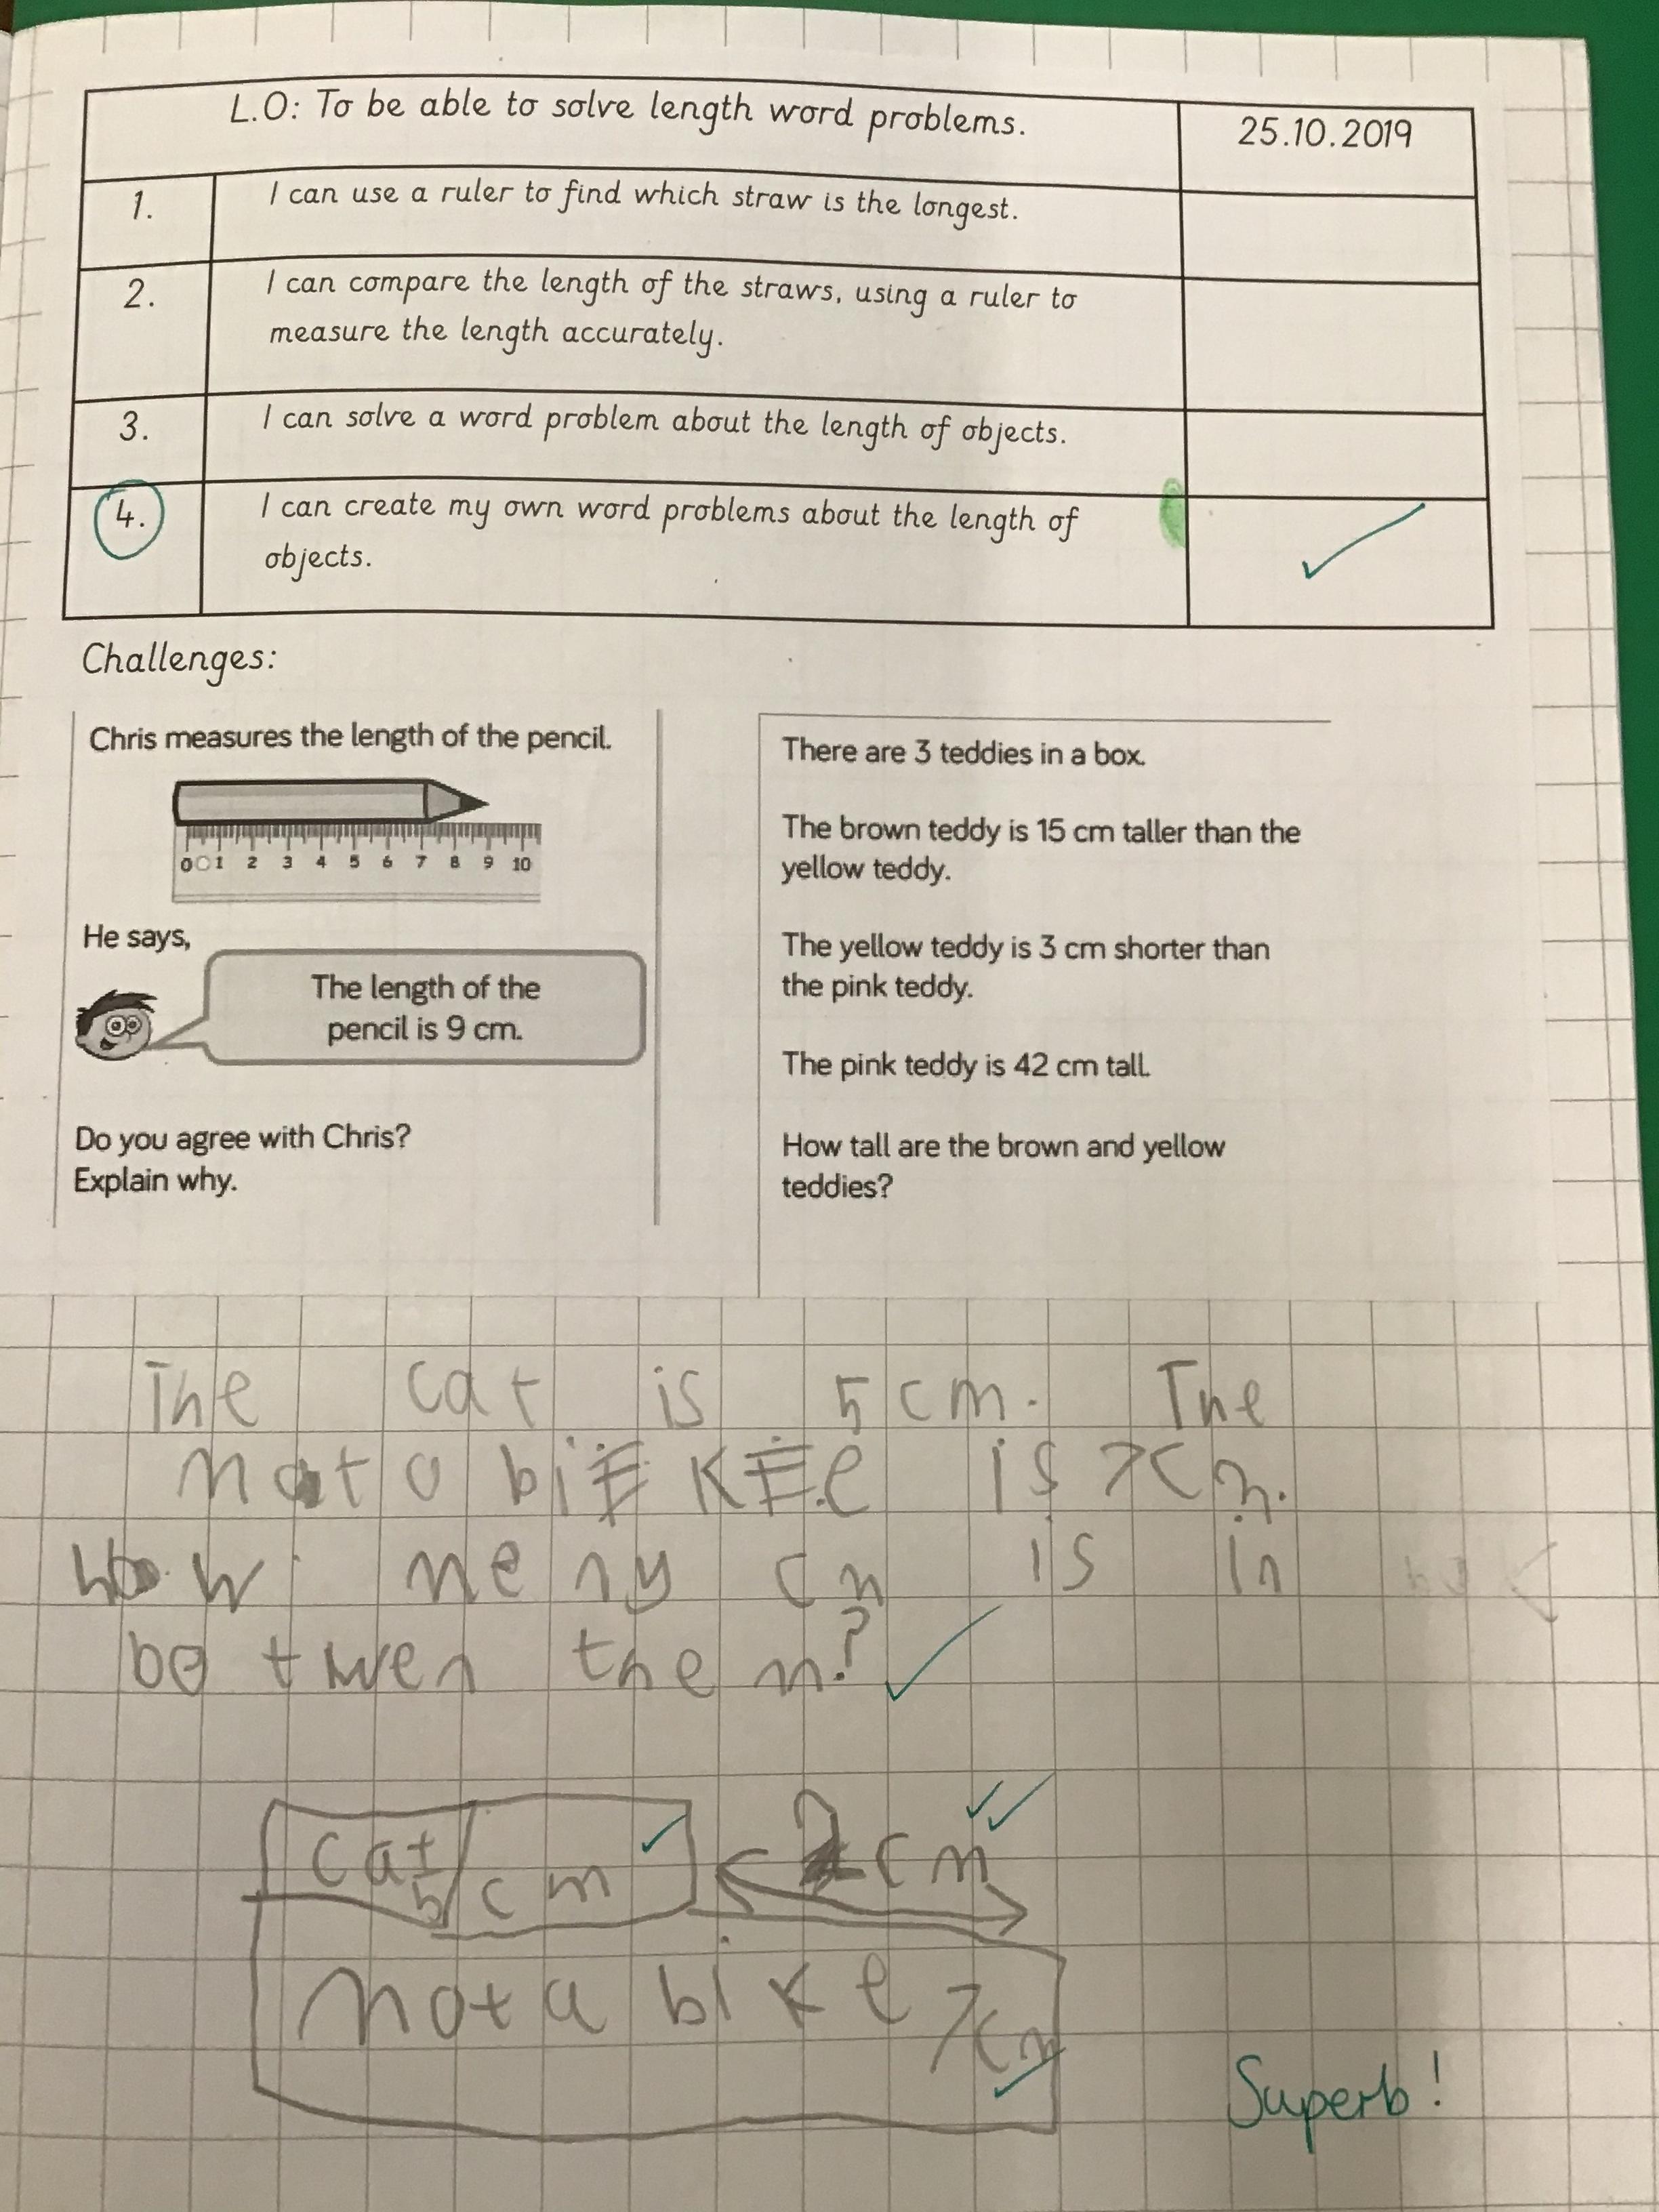 L.O: To be able to solve length word problems.
25.10.2019
1.
I can use a ruler to find which straw is the longest.
2.
I can compare the length of the straws, using a ruler to
measure the length accurately.
3.
I can solve a word problem about the length of objects.
4.
I can create my own word problems about the length of
objects.
Challenges:
Chris measures the length of the pencil.
0 1 2 3 4 5 6 7 8 9 10
He says,
The length of the
pencil is 9 cm.
Do you agree with Chris?
Explain why.
There are 3 teddies in a box.
The brown teddy is 15 cm taller than the
yellow teddy.
The yellow teddy is 3 cm shorter than
the pink teddy.
The pink teddy is 42 cm tall.
How tall are the brown and yellow
teddies?
The cat is 5cm. The
is 7cm.
how meny cm is in
betwen them?
cat 5cm
2cm
motabike 7cm
Superb!